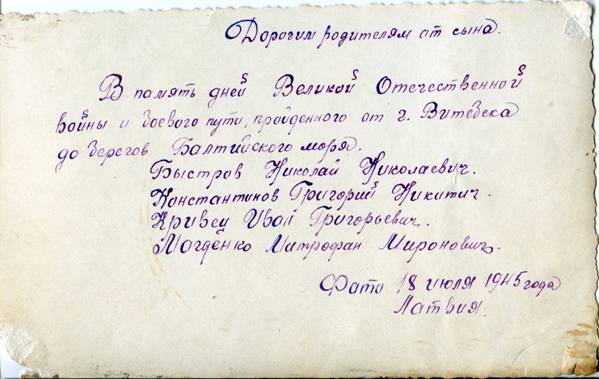 Дорогим родителям от сына.
В память дней Великой Отечественной
войны и боевого пути, пройденного от г. Витебска
до берегов Балтийского моря.
Быстров Николай Николаевич.
Константинов Григорий Никитич.
Кривец Иван Григорьевич.
Магденко Митрофан Миронович.
Фото 18 июля 1945 года
Латвия.